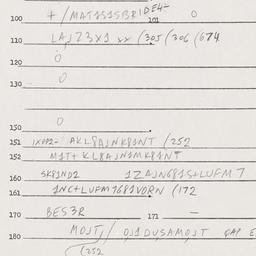 100 + / MAT1S1SBRIDE4- 101 0
110 LAJZ3X1 xx (305 (306 (674
120 0
130 0
0
150
151 1XPP2- AKL8AJNK81NT (252
152 M1T+ KL8AJN1MK81NT
160 SK81ND2 1ZAJNG81S+LUFM 7
161 1NC+LUFM7681VORN (172
170 BES3R 171 —
180 MOJT, / OJ1DUSAMOJT GAP E
(252